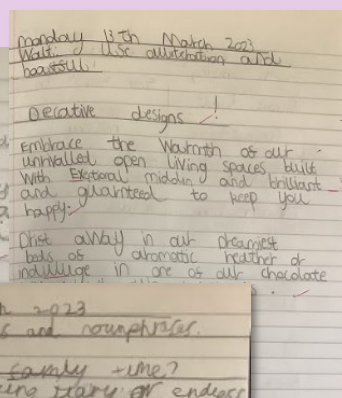 monday 13th March 2023
Walt: Use alliteration and
boastful
Decrative designs!
Embrace the Warmth of our
unrivalled open living spaces built
With middin and brilliant
and guarnteed to keep you
happy.
Drist away in our dreamiest
beds of automatic heather or
indulluge in one of our chocolate
2023
and nounphrases.
family time?
or endless